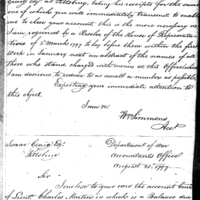 at Pittsburg, taking his receipts for the same
one of which you will immediately transmit to enable me
to close your account, this is the more necessary as
I am, required by a Resolve of the House of Representa
tives of 2 March 1797 to lay before them within the first
week in January next an abstract of the names of all
those who stand charged with monies on the Office books
I am desirous to render as small a number as possible
Expecting your immediate attention to
this Subject.
I am &c
Wm Simmons
Acct
Isaac Craig Esqr
Pittsburg
Department of War
Accountants Office
August 21, 1797.
Sir
I enclose to you now the account Current
of Lieut Charles Martin in which is a Balance due